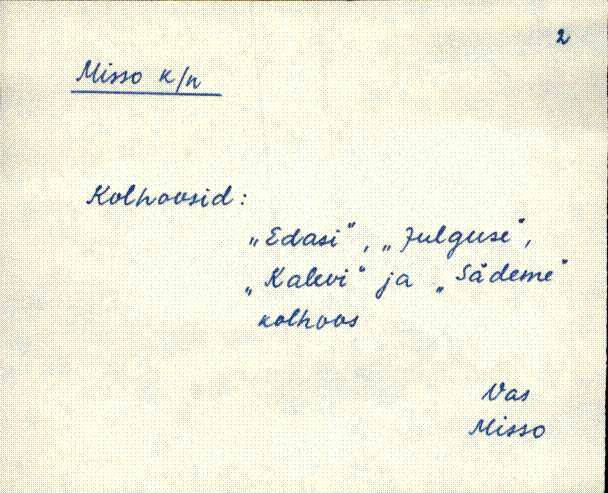 2
Misso k/n
Kolhoosid:
„Edasi", „Julguse",
„Kalevi" ja „Sädeme"
kolhoos
Vas
Misso